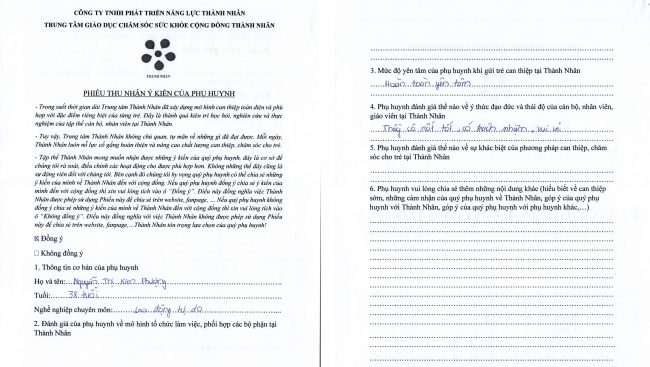 CÔNG TY TNHH PHÁT TRIỂN NĂNG LỰC THÀNH NHÂN
TRUNG TÂM GIÁO DỤC CHĂM SÓC SỨC KHỎE CỘNG ĐỒNG THÀNH NHÂN
THÀNH NHÂN
PHIẾU THU NHẬN Ý KIẾN CỦA PHỤ HUYNH
- Trong suốt thời gian dài Trung tâm Thành Nhân đã xây dựng mô hình can thiệp toàn diện và phù
hợp với đặc điểm riêng biệt của từng trẻ. Đây là thành quả kiên trì học hỏi, nghiên cứu và thực
nghiệm của tập thể cán bộ, nhân viên tại Thành Nhân.
- Tuy vậy, Trung tâm Thành Nhân không chủ quan, tự mãn về những gì đã đạt được. Mỗi ngày,
Thành Nhân luôn nỗ lực cố gắng hoàn thiện và nâng cao chất lượng can thiệp, chăm sóc cho trẻ.
- Tập thể Thành Nhân mong muốn nhận được những ý kiến của quý phụ huynh, đây là cơ sở để
chúng tôi rà soát, điều chỉnh các hoạt động cho được phù hợp hơn. Không những thế đây cũng là
sự động viên đối với chúng tôi. Bên cạnh đó chúng tôi hy vọng quý phụ huynh có thể chia sẻ những
ý kiến của mình về Thành Nhân đến với cộng đồng. Nếu quý phụ huynh đồng ý chia sẻ ý kiến của
mình đến với cộng đồng thì xin vui lòng tích vào ô "Đồng ý". Điều này đồng nghĩa với việc Thành
Nhân được phép sử dụng Phiếu này để chia sẻ trên website, fanpage, ... Nếu quý phụ huynh không
đồng ý chia sẻ những ý kiến của mình về Thành Nhân đến với cộng đồng thì xin vui lòng tích vào
ô "Không đồng ý". Điều này đồng nghĩa với việc Thành Nhân không được phép sử dụng Phiếu
này để chia sẻ trên website, fanpage,...Thành Nhân tôn trọng lựa chọn của quý phụ huynh!
☒ Đồng ý
☐ Không đồng ý
1. Thông tin cơ bản của phụ huynh
Họ và tên: Nguyễn Thị Kim Phượng
Tuổi: 38 tuổi
Nghề nghiệp chuyên môn: Lao động tự do
2. Đánh giá của phụ huynh về mô hình tổ chức làm việc, phối hợp các bộ phận tại
Thành Nhân
3. Mức độ yên tâm của phụ huynh khi gửi trẻ can thiệp tại Thành Nhân
Hoàn toàn yên tâm
4. Phụ huynh đánh giá thế nào về ý thức đạo đức và thái độ của cán bộ, nhân viên,
giáo viên tại Thành Nhân
Thầy cô rất tốt, có trách nhiệm, vui vẻ
5. Phụ huynh đánh giá thế nào về sự khác biệt của phương pháp can thiệp, chăm
sóc cho trẻ tại Thành Nhân
6. Phụ huynh vui lòng chia sẻ thêm những nội dung khác (hiểu biết về can thiệp
sớm, những cảm nhận của quý phụ huynh về Thành Nhân, góp ý của quý phụ
huynh với Thành Nhân, góp ý của quý phụ huynh với phụ huynh khác,...)